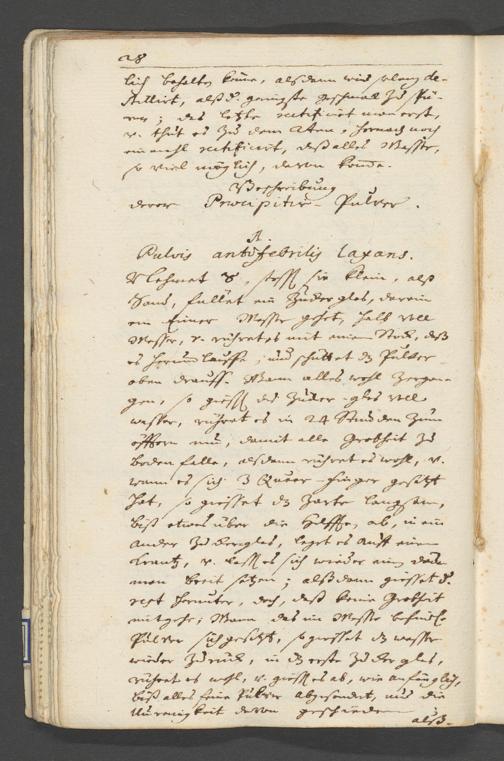 28
lich behalten könne, alsdann wird solang de-
stillirt, alß d. geringste geschmack zu spü-
ren; das letzte rectificirt man erst,
v. thut es zu dem Aten, hernach noch
ein mahl rectificirt, daß alles Wasser,
so viel möglich, davon komme.
Beschreibung
derer Præcipitir-Pulver.
A.
Pulvis antifebrilis laxans.
Nehmet, stoßt sie klein, alß
Sand, füllet ein Zuckerglas, darein
ein Eimer Wasser gehet, halb voll
Wasser, v. rühret es mit einem Stock, daß
es herum lauffe, und schüttet dz Pulver
oben drauff. Wann alles wohl zergan-
gen, so gießt das Zucker-glas voll
wasser, rühret es in 24 Stunden zum
öfftern um, damit alle Grobheit zu
boden falle, alsdann rühret es wohl, v.
wann es sich 3 Queer-finger gesetzt
hat, so giesset dz Zarte langsam,
biß etwas über die Helffte, ab, in ein
ander Zuckerglas, leget es auff einen
Crantz, v. lasst es sich wieder ein
breit setzen; alßdann giesset d.
rest herunter, doch, daß keine Grobheit
mitgehe; Wann das im Wasser befindl.
Pulver sich gesetzt, so giesset dz wasser
wieder zurück, in dz erste Zuckerglas,
rühret es wohl, v. giesst es ab, wie anfänglich,
biß alles feine Pulver abgesondert, und die
Unreinigkeit davon geschieden
alß-